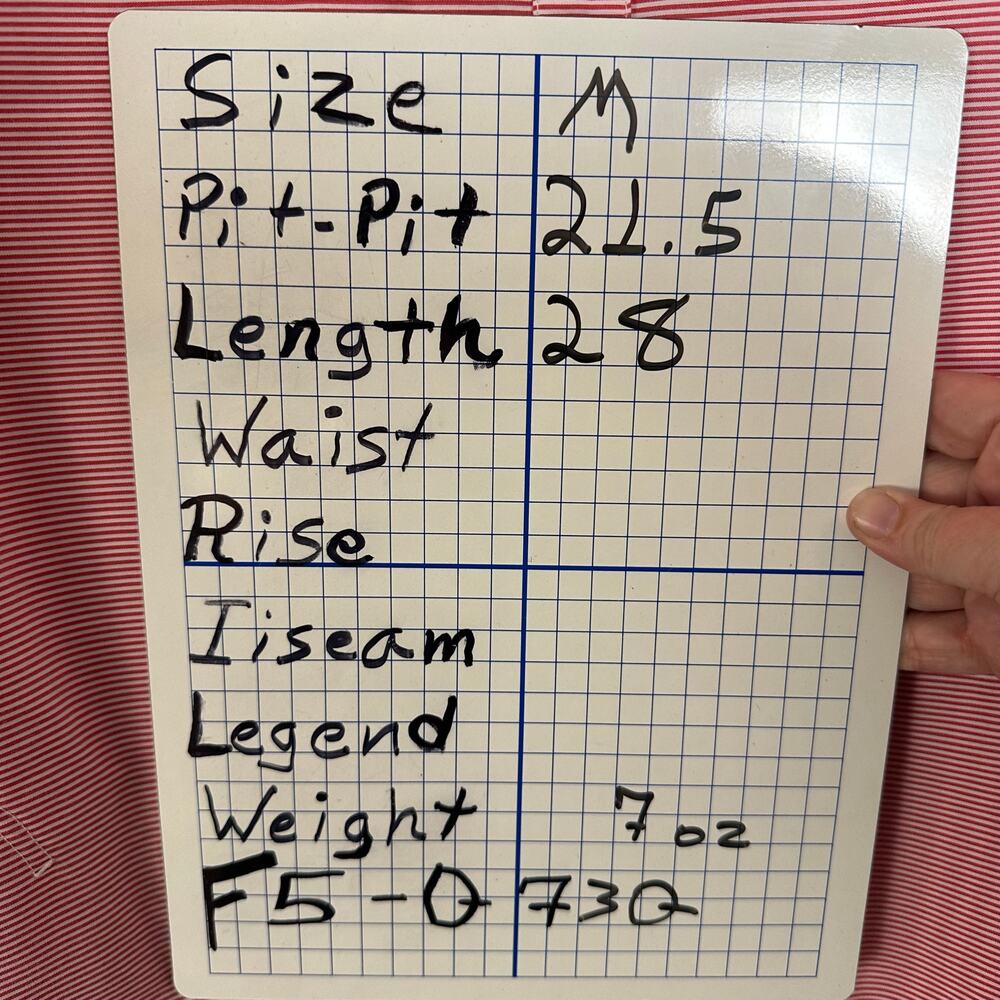 Size M
Pit-Pit 21.5
Length 28
Waist
Rise
Iiseam
Legend
Weight 7 oz
F5-0730